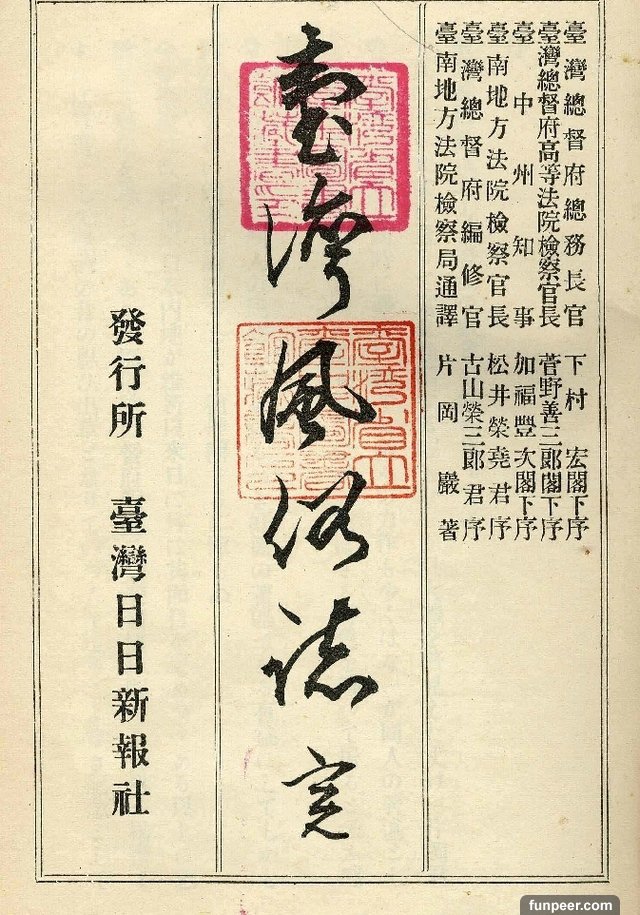 臺灣總督府總務長官 下村 宏閣下序
臺灣總督府高等法院檢察官長 菅野善三郎閣下序
臺中州知事 加福豐次閣下序
臺南地方法院檢察官長 松井榮堯君序
臺灣總督府編修官 古山榮三郎君序
臺南地方法院檢察局通譯 片岡巖著
臺灣風俗誌 完
發行所 臺灣日日新報社
funpeer.com